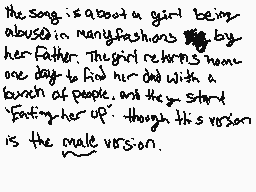 the song is about a girl being
abused in many fashions by
her father. The girl returns home
one day to find her dad with a
bunch of people. and they start
"Eating her up". though this version
is the male version.